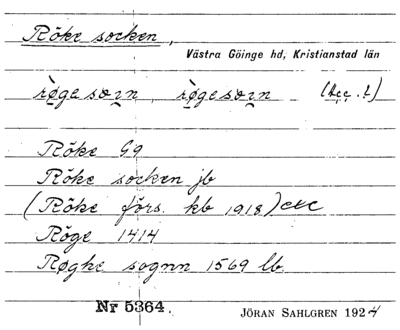 Röke socken,
Västra Göinge hd, Kristianstad län
rø̀gesoın, rø̀gesoın (acc. 2)
Röke G9
Röke socken jb
(Röke förs. kb 1918) etc
Röge 1414
Røghe sognn 1569 lb.
Nr 5364.
JÖRAN SAHLGREN 1924